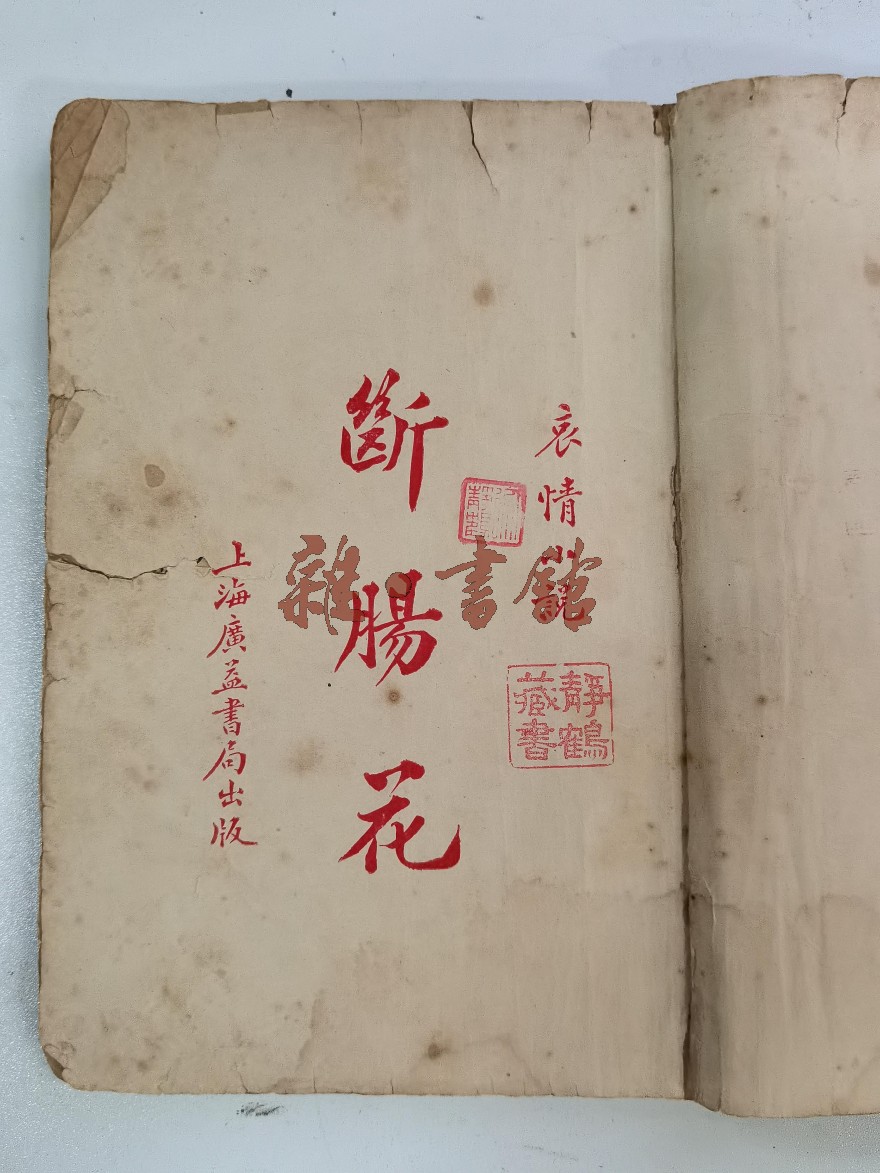 哀情小說
斷腸花
上海廣益書局出版
靜鶴藏書
雜·書館